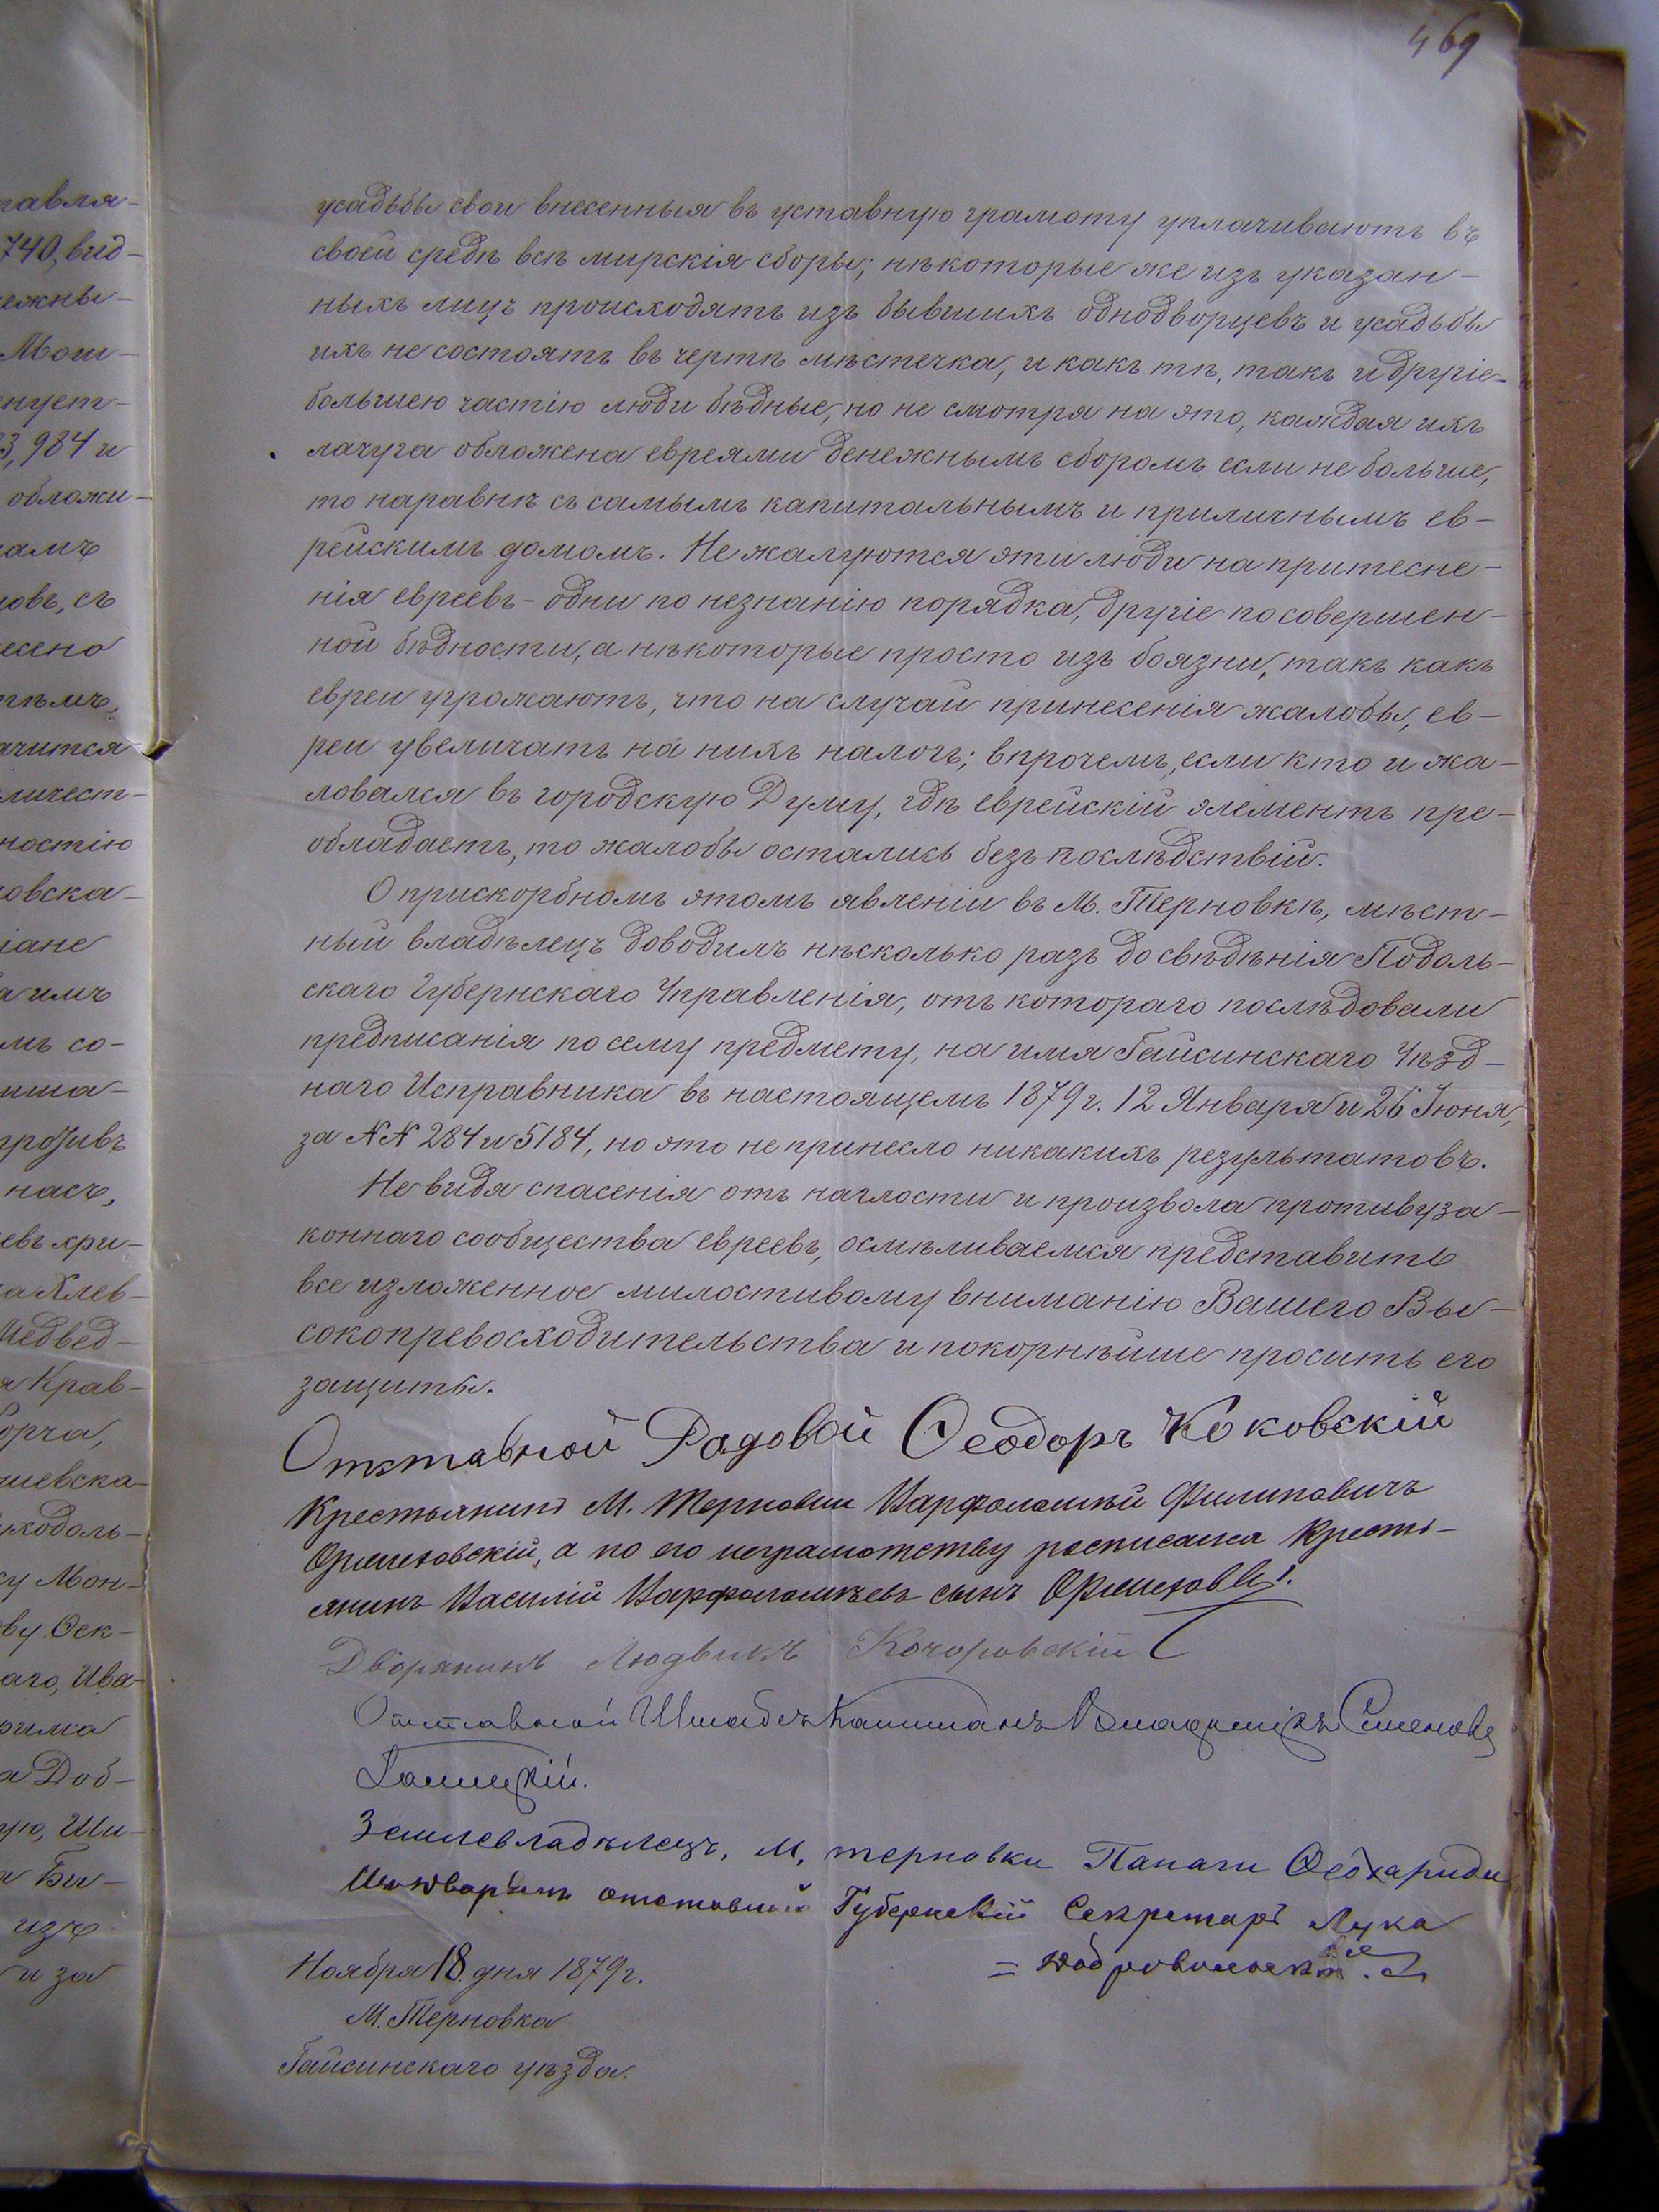 469
усадьбы свои внесенныя въ уставную грамоту уплачиваютъ въ
своей средѣ всѣ мирскія сборы; нѣкоторые же изъ указан-
ныхъ лицъ происходятъ изъ бывшихъ однодворцевъ и усадьбы
ихъ не состоятъ въ чертѣ мѣстечка, и какъ тѣ, такъ и другіе-
большею частію люди бѣдные, но не смотря на это, каждая ихъ
лачуга обложена евреями денежнымъ сборомъ если не больше,
то наравнѣ съ самымъ капитальнымъ и приличнымъ ев-
рейскимъ домомъ. Не жалуются эти люди на притесне-
нія евреевъ - одни по незнанію порядка, другіе по совершен-
ной бѣдности, а нѣкоторые просто изъ боязни, такъ какъ
евреи угрожаютъ, что на случай принесенія жалобы, ев-
реи увеличатъ на нихъ налогъ; впрочемъ, если кто и жа-
ловался въ городскую Думу, гдѣ еврейскій элементъ пре-
обладаетъ, то жалобы остались безъ послѣдствій.
О прискорбномъ этомъ явленіи въ М. Терновкѣ, мѣст-
ный владѣлецъ доводилъ нѣсколько разъ до свѣдѣнія Подоль-
скаго Губернскаго Управленія, отъ котораго послѣдовали
предписанія по сему предмету, на имя Гайсинскаго Уѣзд-
наго Исправника въ настоящемъ 1879 г. 12 Января и 26 Іюня,
за NN 284 и 5184, но это не принесло никакихъ результатовъ.
Не видя спасенія отъ наглости и произвола противуза-
коннаго сообщества евреевъ, осмѣливаемся представить
все изложенное милостивому вниманію Вашего Вы-
сокопревосходительства и покорнѣйше просить его
защиты.
Отставной Рядовой Ѳеодоръ Коковскій
Крестьянинъ М. Терновки Варфоломѣй Филиповичъ
а по его неграмотству росписался Кресть-
янинъ Василій Варфоломѣевъ сынъ
Дворянинъ Людвикъ Кочоровскій
Отставной Штабсъ Капитанъ Владиміръ Семеновъ
Землевладѣлецъ, М, терновки Панаги Ѳеохариди
отставной Губернскій Секретарь Лука
= Добровольскій.
Ноября 18 дня 1879 г.
М. Терновка
Гайсинскаго уѣзда.